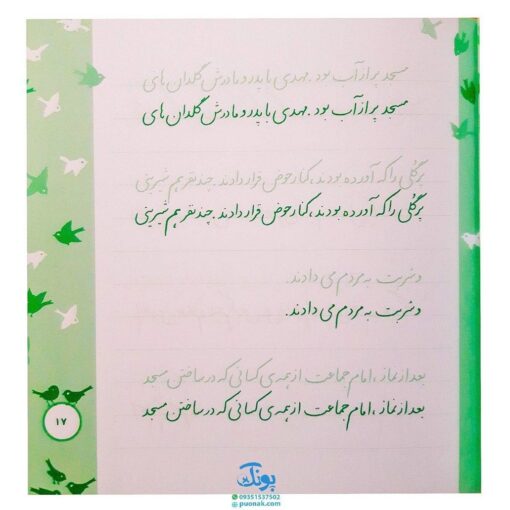 مسجد پر از آب بود. مهدی با پدر و مادرش گلدان های
مسجد پر از آب بود. مهدی با پدر و مادرش گلدان های
پرگلی را که آورده بودند، کنار حوض قرار دادند. چند نفر هم شیرینی
پرگلی را که آورده بودند، کنار حوض قرار دادند. چند نفر هم شیرینی
و شربت به مردم می دادند.
و شربت به مردم می دادند.
بعد از نماز، امام جماعت از همه ی کسانی که در ساختن مسجد
بعد از نماز، امام جماعت از همه ی کسانی که در ساختن مسجد
۱۷
پونک
09351537502
puonak.com